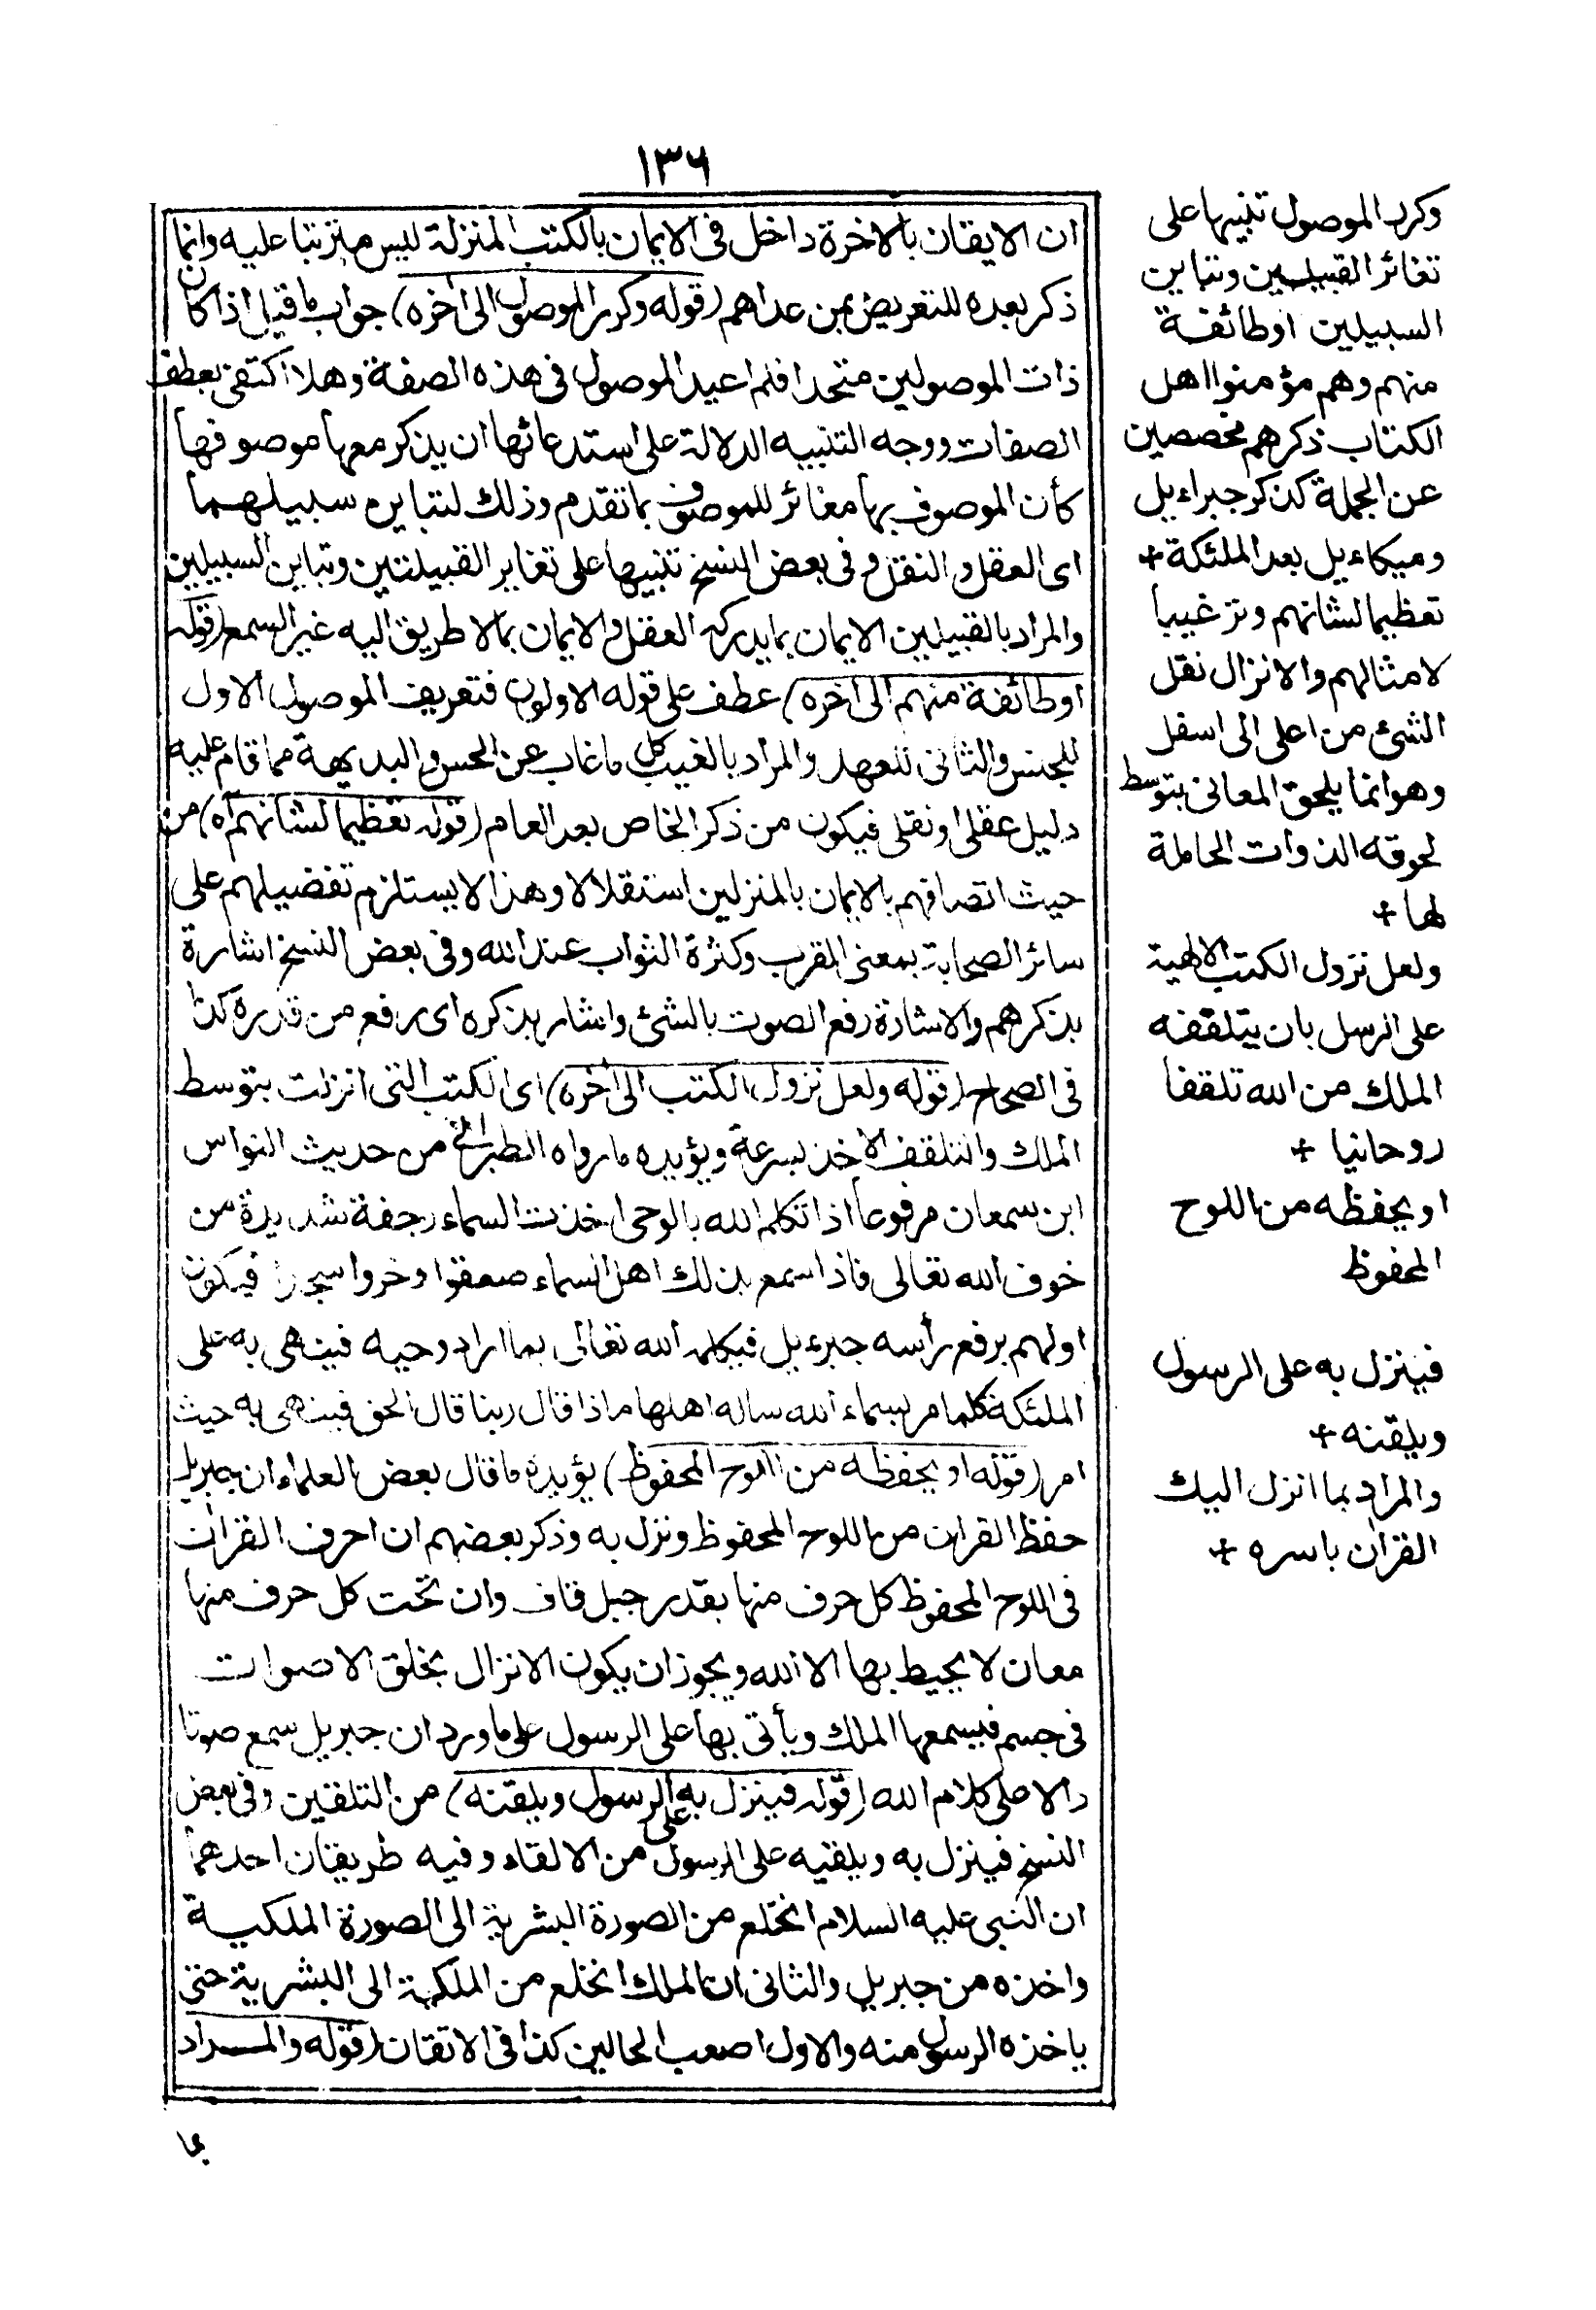 ١٣٦
ان الايقان بالاخرة داخل فى الايمان بالكتب المنزلة ليس مترتبا عليه وانما
ذكر بعده للتعريض بمن عداهم (قوله وكرر الموصول الى اخره) جواب ما قيل اذا كان
ذات الموصولين متحدا فلم اعيد الموصول فى هذه الصفة وهلا اكتفى بعطف
الصفات ووجه التنبيه الدلالة على استدعائها ان يذكر معها موصوفها
كأن الموصوف بها مغائر للموصوف بما تقدم وذلك لتباين سبيلهما
اى العقل والنقل وفى بعض النسخ تنبيها على تغاير القبيلتين وتباين السبيلين
والمراد بالقبيلين الايمان بما يدركه العقل والايمان بما لا طريق اليه غير السمع (قوله
اوطائفة منهم الى اخره) عطف على قوله الاولون فتعريف الموصول الاول
للجنس والثانى للعهد والمراد بالغيب كل ما غاب عن الحس والبديهة مما قام عليه
دليل عقلى او نقلى فيكون من ذكر الخاص بعد العام (قوله تعظيما لشانهم آه) من
حيث اتصافهم بالايمان بالمنزلين استقلالا وهذا لا يستلزم تفضيلهم على
سائر الصحابة بمعنى القرب وكثرة الثواب عند الله وفى بعض النسخ اشارة
بذكرهم والاشادة رفع الصوت بالشئ واشار بذكره اى رفع من قدره كذا
فى الصحاح (قوله ولعل نزول الكتب الى اخره) اى الكتب التى انزلت بتوسط
الملك والتلقف الاخذ بسرعة ويؤيده ما رواه الطبرانى من حديث النواس
ابن سمعان مرفوعا اذا تكلم الله بالوحى اخذت السماء رجفة شديدة من
خوف الله تعالى فاذا سمع بذلك اهل السماء صعقوا وخروا سجدا فيكون
اولهم يرفع رأسه جبرءيل فيكلمه الله تعالى بما اراد وحيه فينتهى به على
الملئكة كلما مر بسماء الله ساله اهلها ماذا قال ربنا قال الحق فينتهى به حيث
امر (قوله او يحفظه من اللوح المحفوظ) يؤيده ما قال بعض العلماء ان جبريل
حفظ القران من اللوح المحفوظ ونزل به وذكر بعضهم ان احرف القران
فى اللوح المحفوظ كل حرف منها بقدر جبل قاف وان تحت كل حرف منها
معان لا يحيط بها الا الله ويجوز ان يكون الانزال بخلق الاصوات
فى جسم فيسمعها الملك ويأتى بها على الرسول على ما ورد ان جبريل سمع صوتا
دالا على كلام الله (قوله فينزل به على الرسول ويلقنه) من التلقين وفى بعض
النسخ فينزل به ويلقيه على الرسول من الالقاء وفيه طريقان احدهما
ان النبى عليه السلام انخلع من الصورة البشرية الى الصورة الملكية
واخذه من جبريل والثانى ان الملك انخلع من الملكية الى البشرية حتى
ياخذه الرسول منه والاول اصعب الحالين كذا فى الاتقان (قوله والمراد
بما
وكرر الموصول تنبيها على
تغائر القبيلين وتباين
السبيلين اوطائفة
منهم وهم مؤمنوا اهل
الكتاب ذكرهم مخصصين
عن الجملة كذكر جبراءيل
وميكاءيل بعد الملئكة +
تعظيما لشانهم وترغيبا
لامثالهم والانزال نقل
الشئ من اعلى الى اسفل
وهو انما يلحق المعانى بتوسط
لحوقه الذوات الحاملة
لها +
ولعل نزول الكتب الالهية
على الرسل بان يتلقفه
الملك من الله تلقفا
روحانيا +
او يحفظه من اللوح
المحفوظ
فينزل به على الرسول
ويلقنه +
والمراد بما انزل اليك
القران باسره +